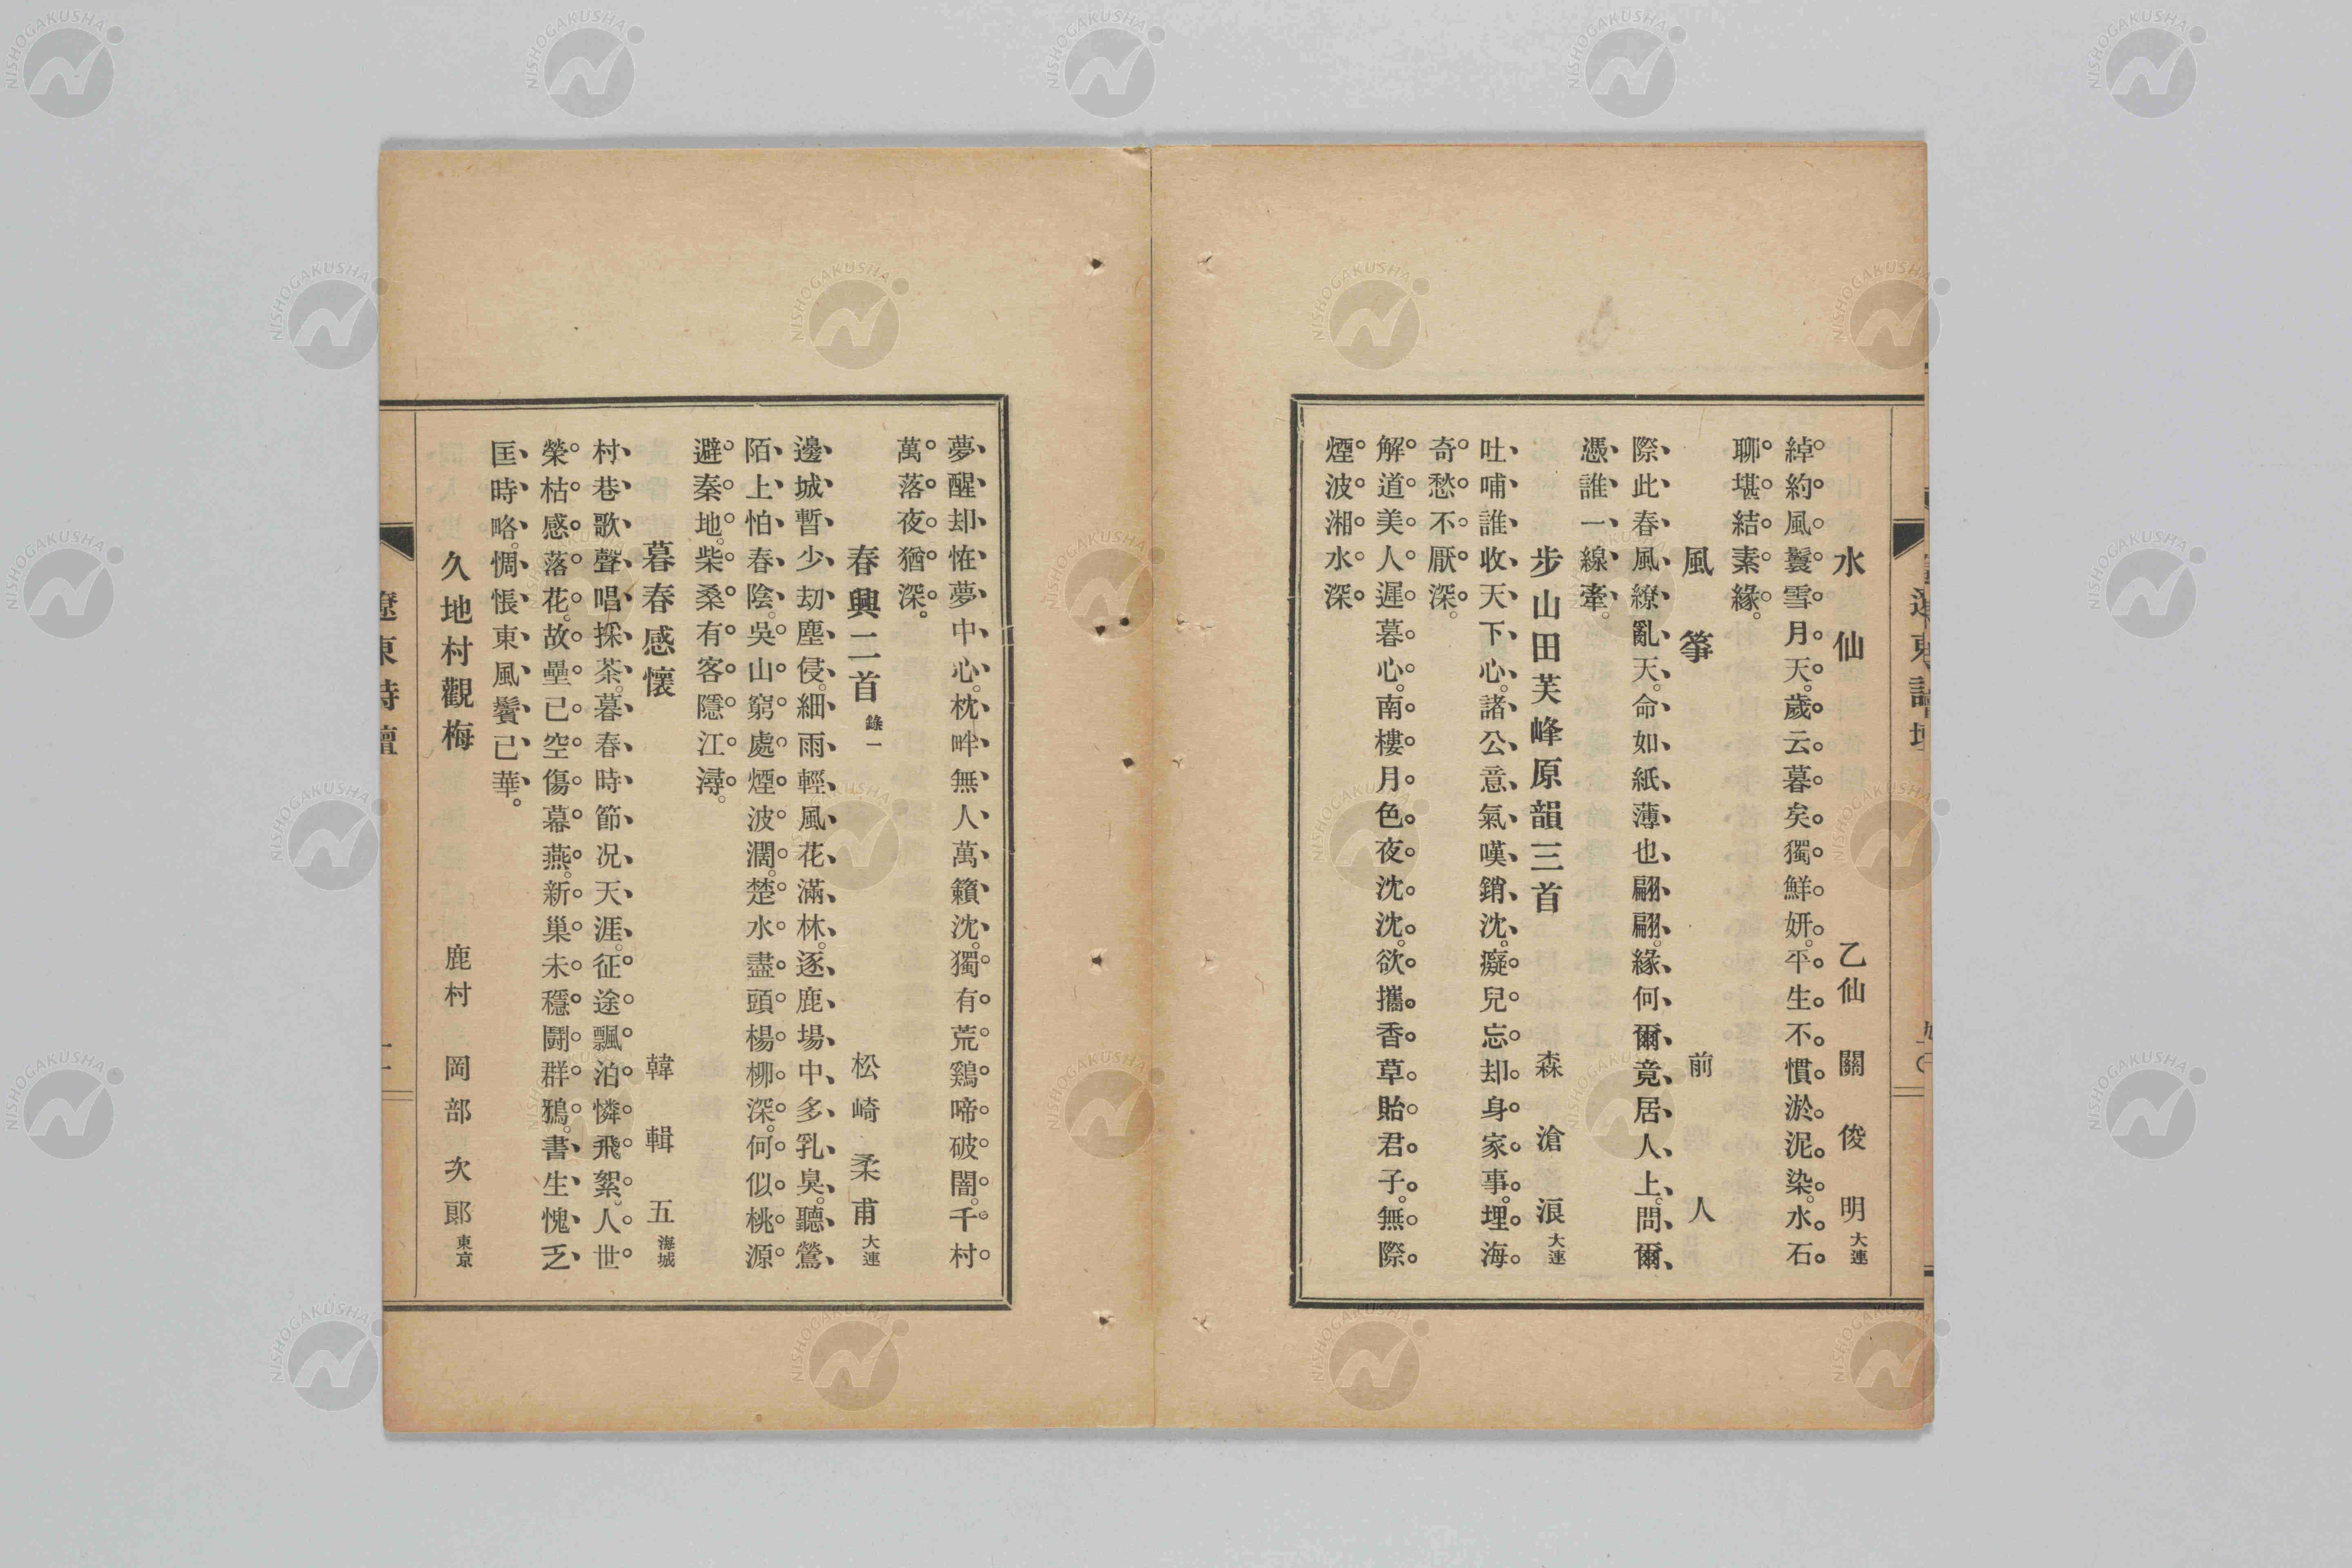 水仙 乙仙 關俊明 大連
綽約風鬟雪月天。歲云暮矣獨鮮妍。平生不慣淤泥染。水石
聊堪結素緣。
風箏 前人
際此春風繚亂天。命如紙薄也翩翩。緣何爾竟居人上。問爾
憑誰一線牽。
步山田芙峰原韻三首 森滄浪 大連
吐哺誰收天下心。諸公意氣嘆銷沈。癡兒忘却身家事。埋海
奇愁不厭深。
解道美人遲暮心。南樓月色夜沈沈。欲攜香草貽君子。無際
煙波湘水深。
夢醒却恠夢中心。枕畔無人萬籟沈。獨有荒鷄啼破闇。千村
萬落夜猶深。
春興二首 錄一 松崎柔甫 大連
邊城暫少劫塵侵。細雨輕風花滿林。逐鹿場中多乳臭。聽鶯
陌上怕春陰。吳山窮處煙波濶。楚水盡頭楊柳深。何似桃源
避秦地。柴桑有客隱江潯。
暮春感懷 韓輯五 海城
村巷歌聲唱採茶。暮春時節况天涯。征途飄泊憐飛絮。人世
榮枯感落花。故壘已空傷幕燕。新巢未穩鬪群鴉。書生愧乏
匡時略。惆悵東風鬢已華。
久地村觀梅 鹿村 岡部次郎 東京
遼東詩壇